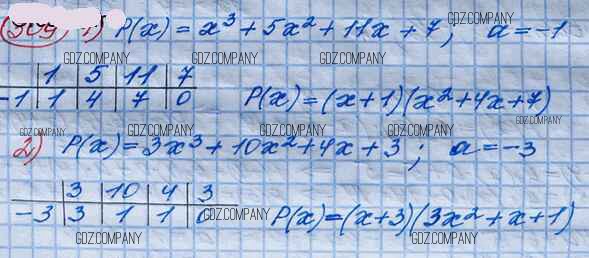 1) P(x) = x³ + 5x² + 11x + 7; a = -1
GDZ.COMPANY
GDZ.COMPANY GDZ.COMPANY GDZ.COMPANY
1 5 11 7
-1 1 4 7 0 P(x) = (x+1)(x²+4x+7)
GDZ.COMPANY GDZ.COMPANY GDZ.COMPANY GDZ.COMPANY GDZ.COMPANY
2) P(x) = 3x³ + 10x² + 4x + 3; a = -3
3 10 4 3
-3 3 1 1 P(x) = (x+3)(3x²+x+1)
GDZ.COMPANY
GDZ.COMPANY GDZ.COMPANY